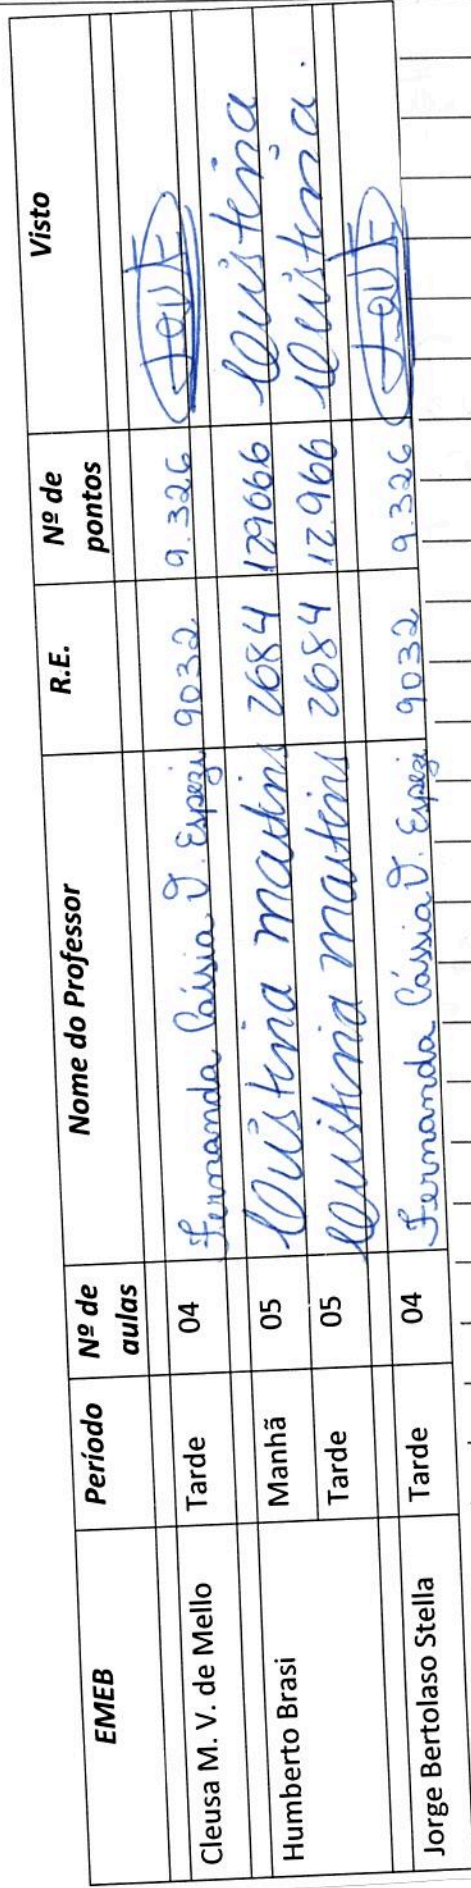 EMEB Período Nº de aulas Nome do Professor R.E. Nº de pontos Visto
Cleusa M. V. de Mello Tarde 04 Fernanda Cássia V. Espezi 9032 9.326
Humberto Brasi Manhã 05 Cristina Martins 2684 129666 Cristina
Tarde 05 Cristina Martins 2684 12.966 Cristina.
Jorge Bertolaso Stella Tarde 04 Fernanda Cássia V. Espezi 9032 9.326